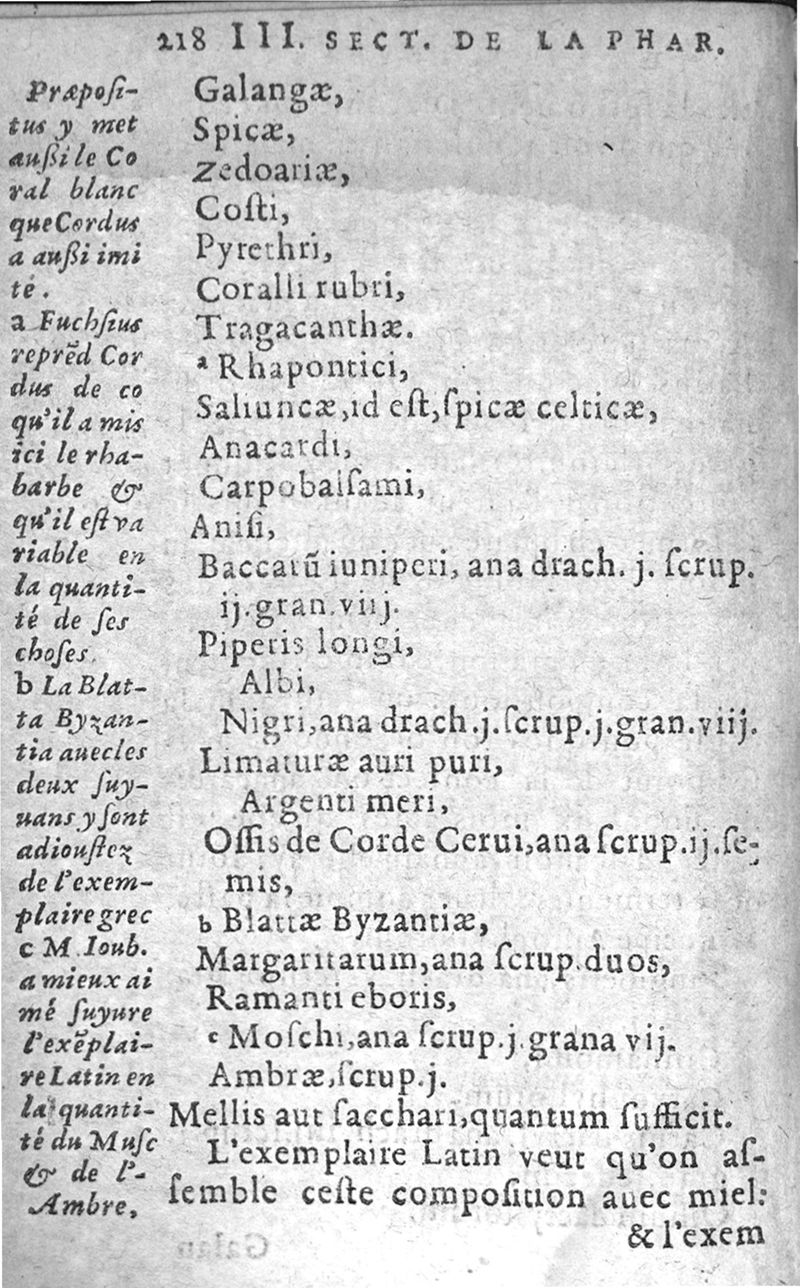 218 III. SECT. DE LA PHAR.
Præpoſi-
tus y met
außi le Co
ral blanc
que Cordus
a außi imi
té.
a Fuchſius
reprẽd Cor
dus de co
qu'il a mis
ici le rha-
barbe &
qu'il eſt va
riable en
la quanti-
té de ſes
choſes.
b La Blat-
ta Byzan-
tia auec les
deux ſuy-
uans y ſont
adiouſtez
de l'exem-
plaire grec
c M. Ioub.
a mieux ai
mé ſuyure
l'exẽplai-
re Latin en
la quanti-
té du Muſc
& de l'-
Ambre,
Galangæ,
Spicæ,
Zedoariæ,
Coſti,
Pyrethri,
Coralli rubri,
Tragacanthæ.
a Rhapontici,
Saliuncæ, id eſt, ſpicæ celticæ,
Anacardi,
Carpobalſami,
Aniſi,
Baccarũ iuniperi, ana drach. j. ſcrup.
ij. gran. viij.
Piperis longi,
Albi,
Nigri, ana drach. j. ſcrup. j. gran. viij.
Limaturæ auri puri,
Argenti meri,
Oſſis de Corde Cerui, ana ſcrup. ij. ſe-
mis,
b Blattæ Byzantiæ,
Margaritarum, ana ſcrup. duos,
Ramanti eboris,
c Moſchi, ana ſcrup. j. grana vij.
Ambræ, ſcrup. j.
Mellis aut ſacchari, quantum ſufficit.
L'exemplaire Latin veut qu'on aſ-
ſemble ceſte compoſition auec miel:
& l'exem